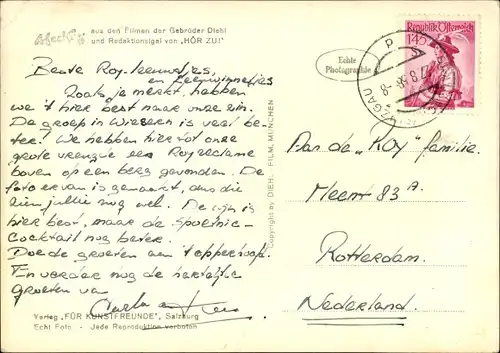 aus den Filmen der Gebrüder Diehl
und Redaktionsigel von „HÖR ZU!"
Beste Roy-leeuwtjes
en Leeuwinnetjes
Zoals je merkt, hebben
we 't hier best naar onze zin.
De groep in Wiesern is veel be-
ter! We hebben hier tot onze
grote vreugde een Royreclame
boven op een berg gevonden. De
foto ervan is gemaakt, dus die
zien jullie nog wel. De wijn is
hier best, maar de Spoetnic-
cocktail nog beter.
Doe de groeten aan 't opperhoofd.
En verder nog de hartelijke
groeten van
Verlag „FÜR KUNSTFREUNDE", Salzburg
Echt Foto - Jede Reproduktion verboten
Copyright by DIEHL-FILM, MÜNCHEN
Echte
Photographie
Republik Österreich
1.45
Aan de "ROY" familie.
Meent 83 A.
Rotterdam.
Nederland.